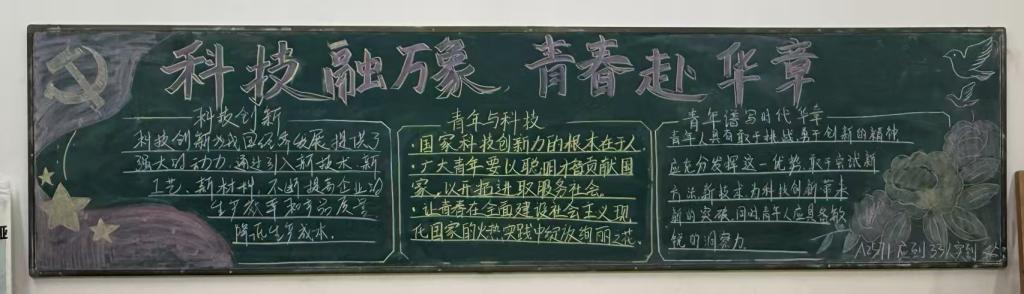 科技融万象，青春赴华章
科技创新
科技创新为我国经济发展提供了
强大的动力，通过引入新技术、新
工艺、新材料，不断提高企业的
生产效率和产品质量
降低生产成本.
青年与科技
·国家科技创新力的根本在于人
·广大青年要以聪明才智贡献国
家，以开拓进取服务社会.
·让青春在全面建设社会主义现
化国家的火热实践中绽放绚丽之花.
青年谱写时代华章
青年人具有敢于挑战勇于创新的精神
应充分发挥这一优势，敢于尝试新
方法新技术为科技创新带来
新的突破，同时青年人应具备敏
锐的洞察力.
应到33人实到